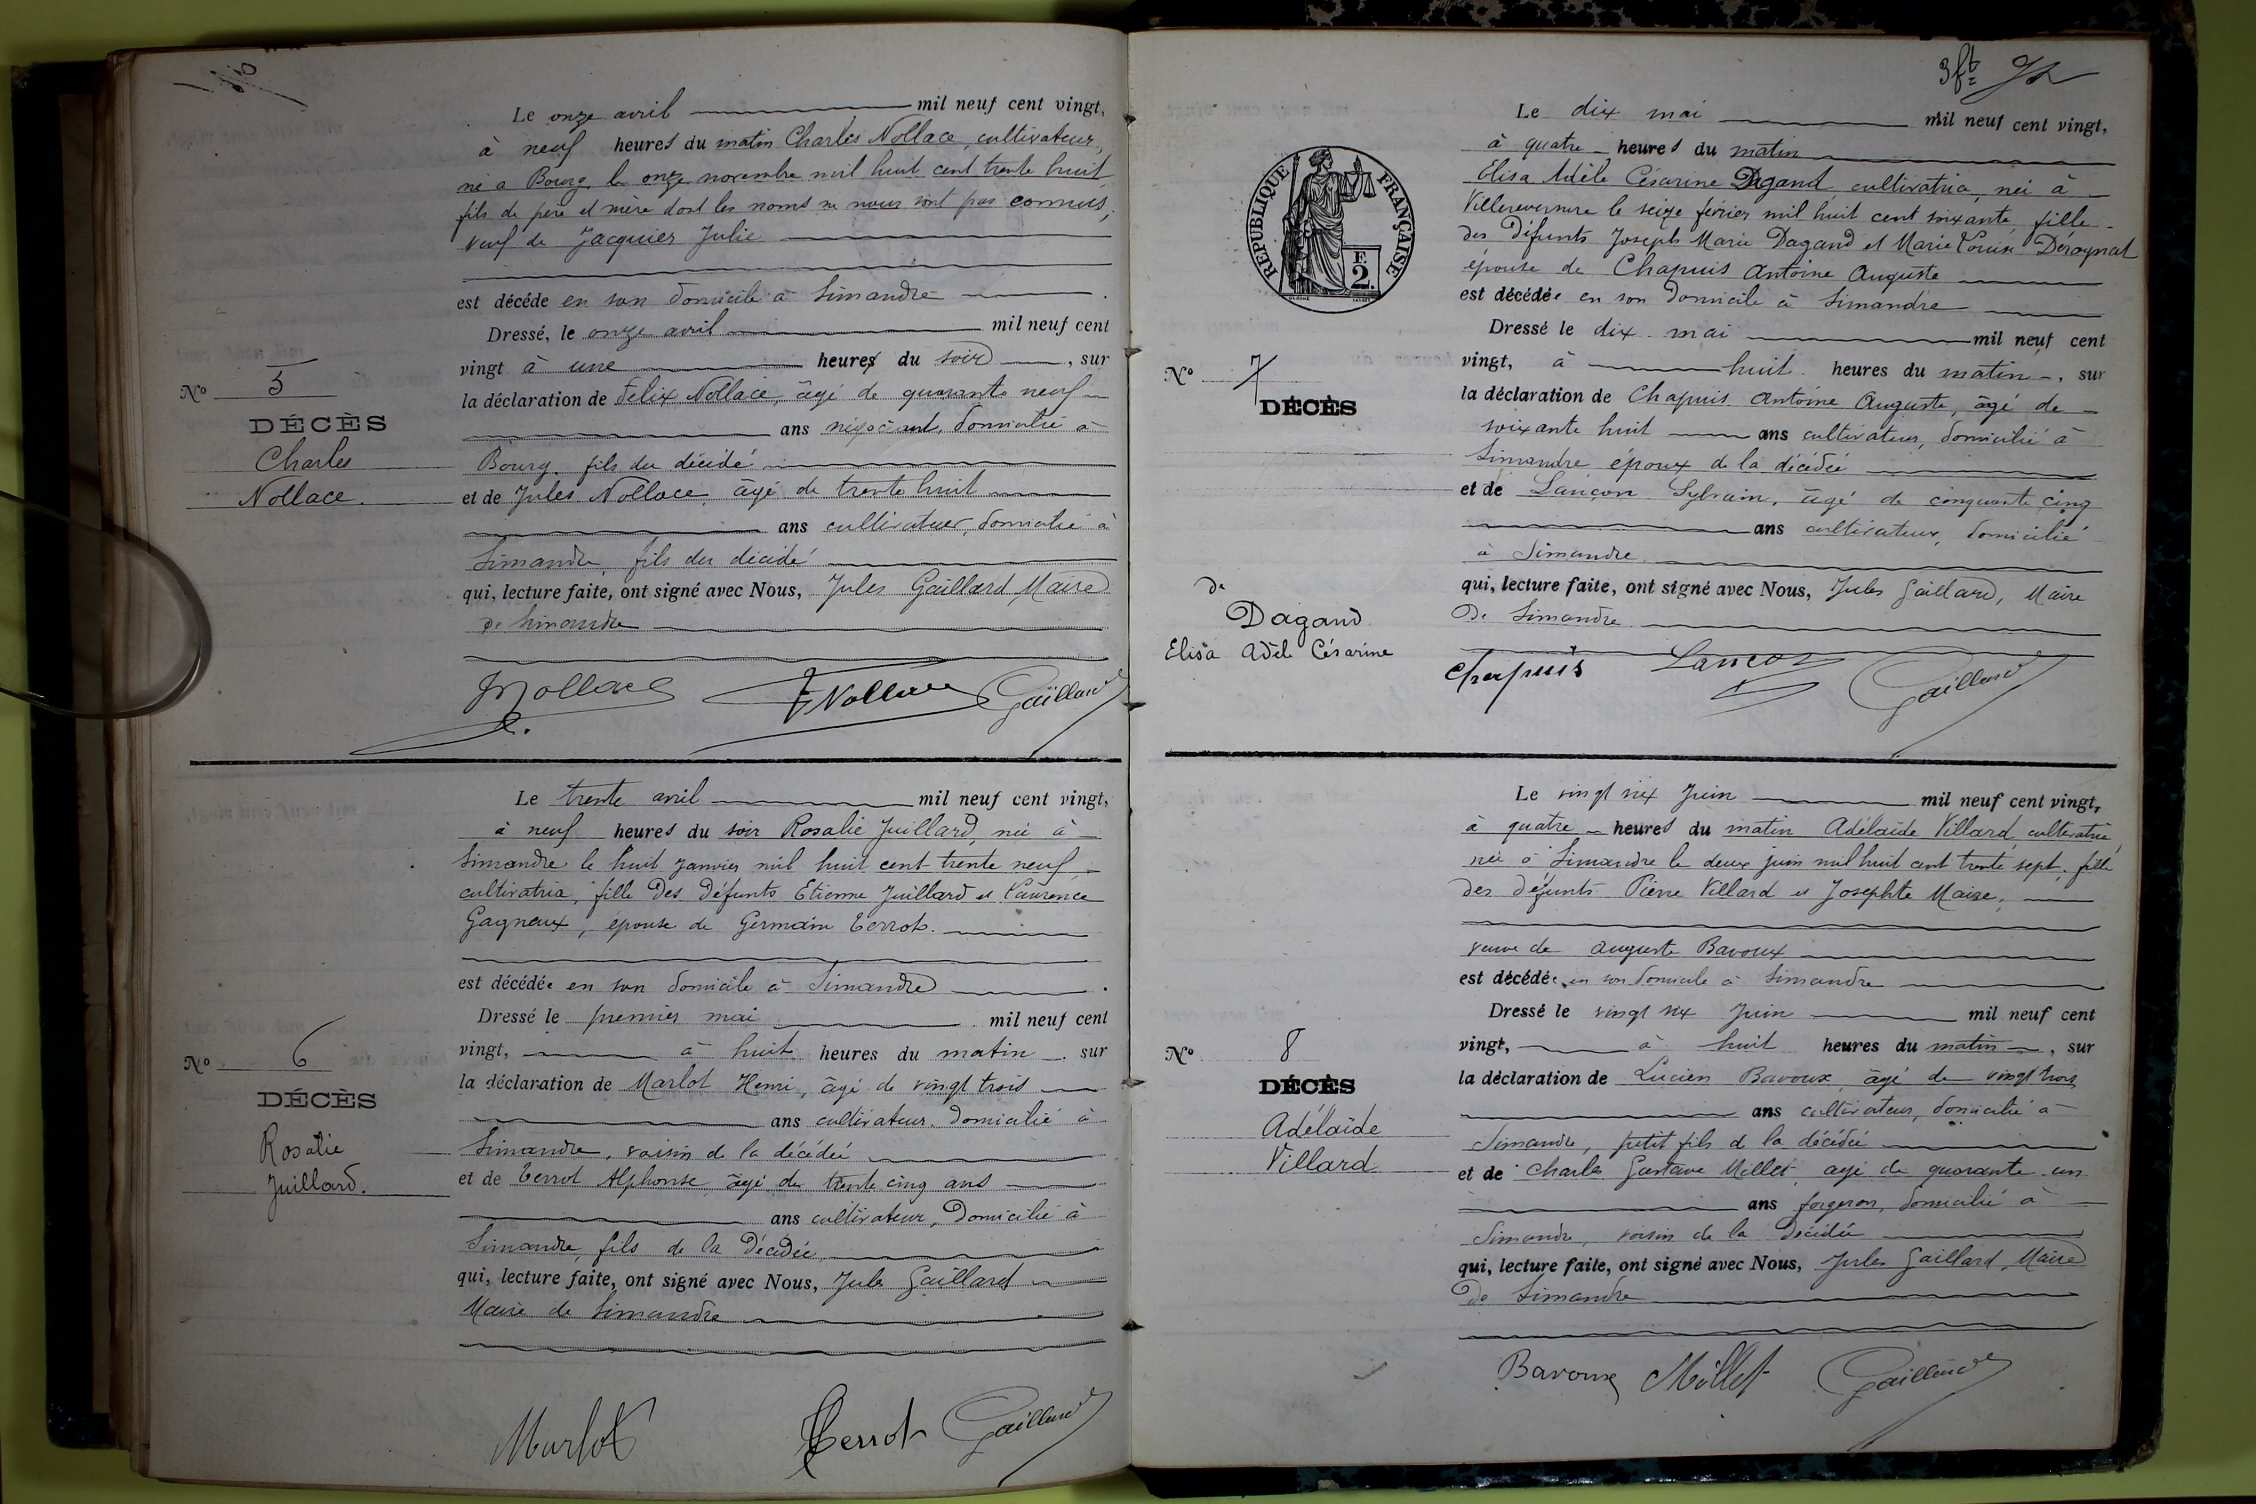 Le onze avril mil neuf cent vingt,
à neuf heures du matin Charles Nollace, cultivateur,
né à Bourg le onze novembre mil huit cent trente huit
fils de père et mère dont les noms ne nous sont pas connus,
veuf de Jacquier Julie
est décédé en son domicile à Simandre
Dressé, le onze avril mil neuf cent
vingt à une heures du soir, sur
la déclaration de Félix Nollace, âgé de quarante neuf
ans négociant, domicilié à
Bourg, fils du décédé
et de Jules Nollace âgé de trente huit
ans cultivateur, domicilié à
Simandre, fils du décédé
qui, lecture faite, ont signé avec Nous, Jules Gaillard Maire
de Simandre
JNollace FNollace Gaillard
No 5
DÉCÈS
Charles
Nollace.
Le trente avril mil neuf cent vingt,
à neuf heures du soir Rosalie Juillard, née à
Simandre le huit janvier mil huit cent trente neuf
cultivatrice, fille des défunts Etienne Juillard et Laurence
Gagneux, épouse de Germain Terrot.
est décédée en son domicile à Simandre.
Dressé le premier mai mil neuf cent
vingt, à huit heures du matin, sur
la déclaration de Marlot Henri, âgé de vingt trois
ans cultivateur domicilié à
Simandre, voisin de la décédée
et de Terrot Alphonse âgé de trente cinq ans
ans cultivateur, Domicilié à
Simandre, fils de la Décédée
qui, lecture faite, ont signé avec Nous, Jules Gaillard
Maire de Simandre
Marlot Terrot Gaillard
No 6
DÉCÈS
Rosalie
Juillard.
3ft
RÉPUBLIQUE FRANÇAISE
F.
2.
Le dix mai mil neuf cent vingt,
à quatre heures du matin
Elisa Adèle Césarine Dagand cultivatrice, née à
Villereversure le seize février mil huit cent soixante, fille
des défunts Joseph Marie Dagand et Marie Louise Deroynat
épouse de Chapuis Antoine Auguste
est décédée en son domicile à Simandre
Dressé le dix mai mil neuf cent
vingt, à huit heures du matin, sur
la déclaration de Chapuis Antoine Auguste, âgé de
soixante huit ans cultivateur, domicilié à
Simandre époux de la décédée
et de Lançon Sylvain, âgé de cinquante cinq
ans cultivateur, domicilié
à Simandre
qui, lecture faite, ont signé avec Nous, Jules Gaillard, Maire
De Simandre
Chapuis Lançon Gaillard
No 7
DÉCÈS
de
Dagand
Elisa Adèle Césarine
Le vingt six Juin mil neuf cent vingt,
à quatre heures du matin Adélaïde Villard, cultivatrice
née à Simandre le deux juin mil huit cent trente sept, fille
des défunts Pierre Villard et Josephte Maire,
veuve de Auguste Bavoux
est décédée en son domicile à Simandre
Dressé le vingt six Juin mil neuf cent
vingt, à huit heures du matin, sur
la déclaration de Lucien Bavoux âgé de vingt trois
ans cultivateur, domicilié à
Simandre, petit fils de la décédée
et de Charles Gustave Millet âgé de quarante un
ans forgeron, domicilié à
Simandre, voisin de la décédée
qui, lecture faite, ont signé avec Nous, Jules Gaillard, Maire
De Simandre
Bavoux Millet Gaillard
No 8
DÉCÈS
Adélaïde
Villard